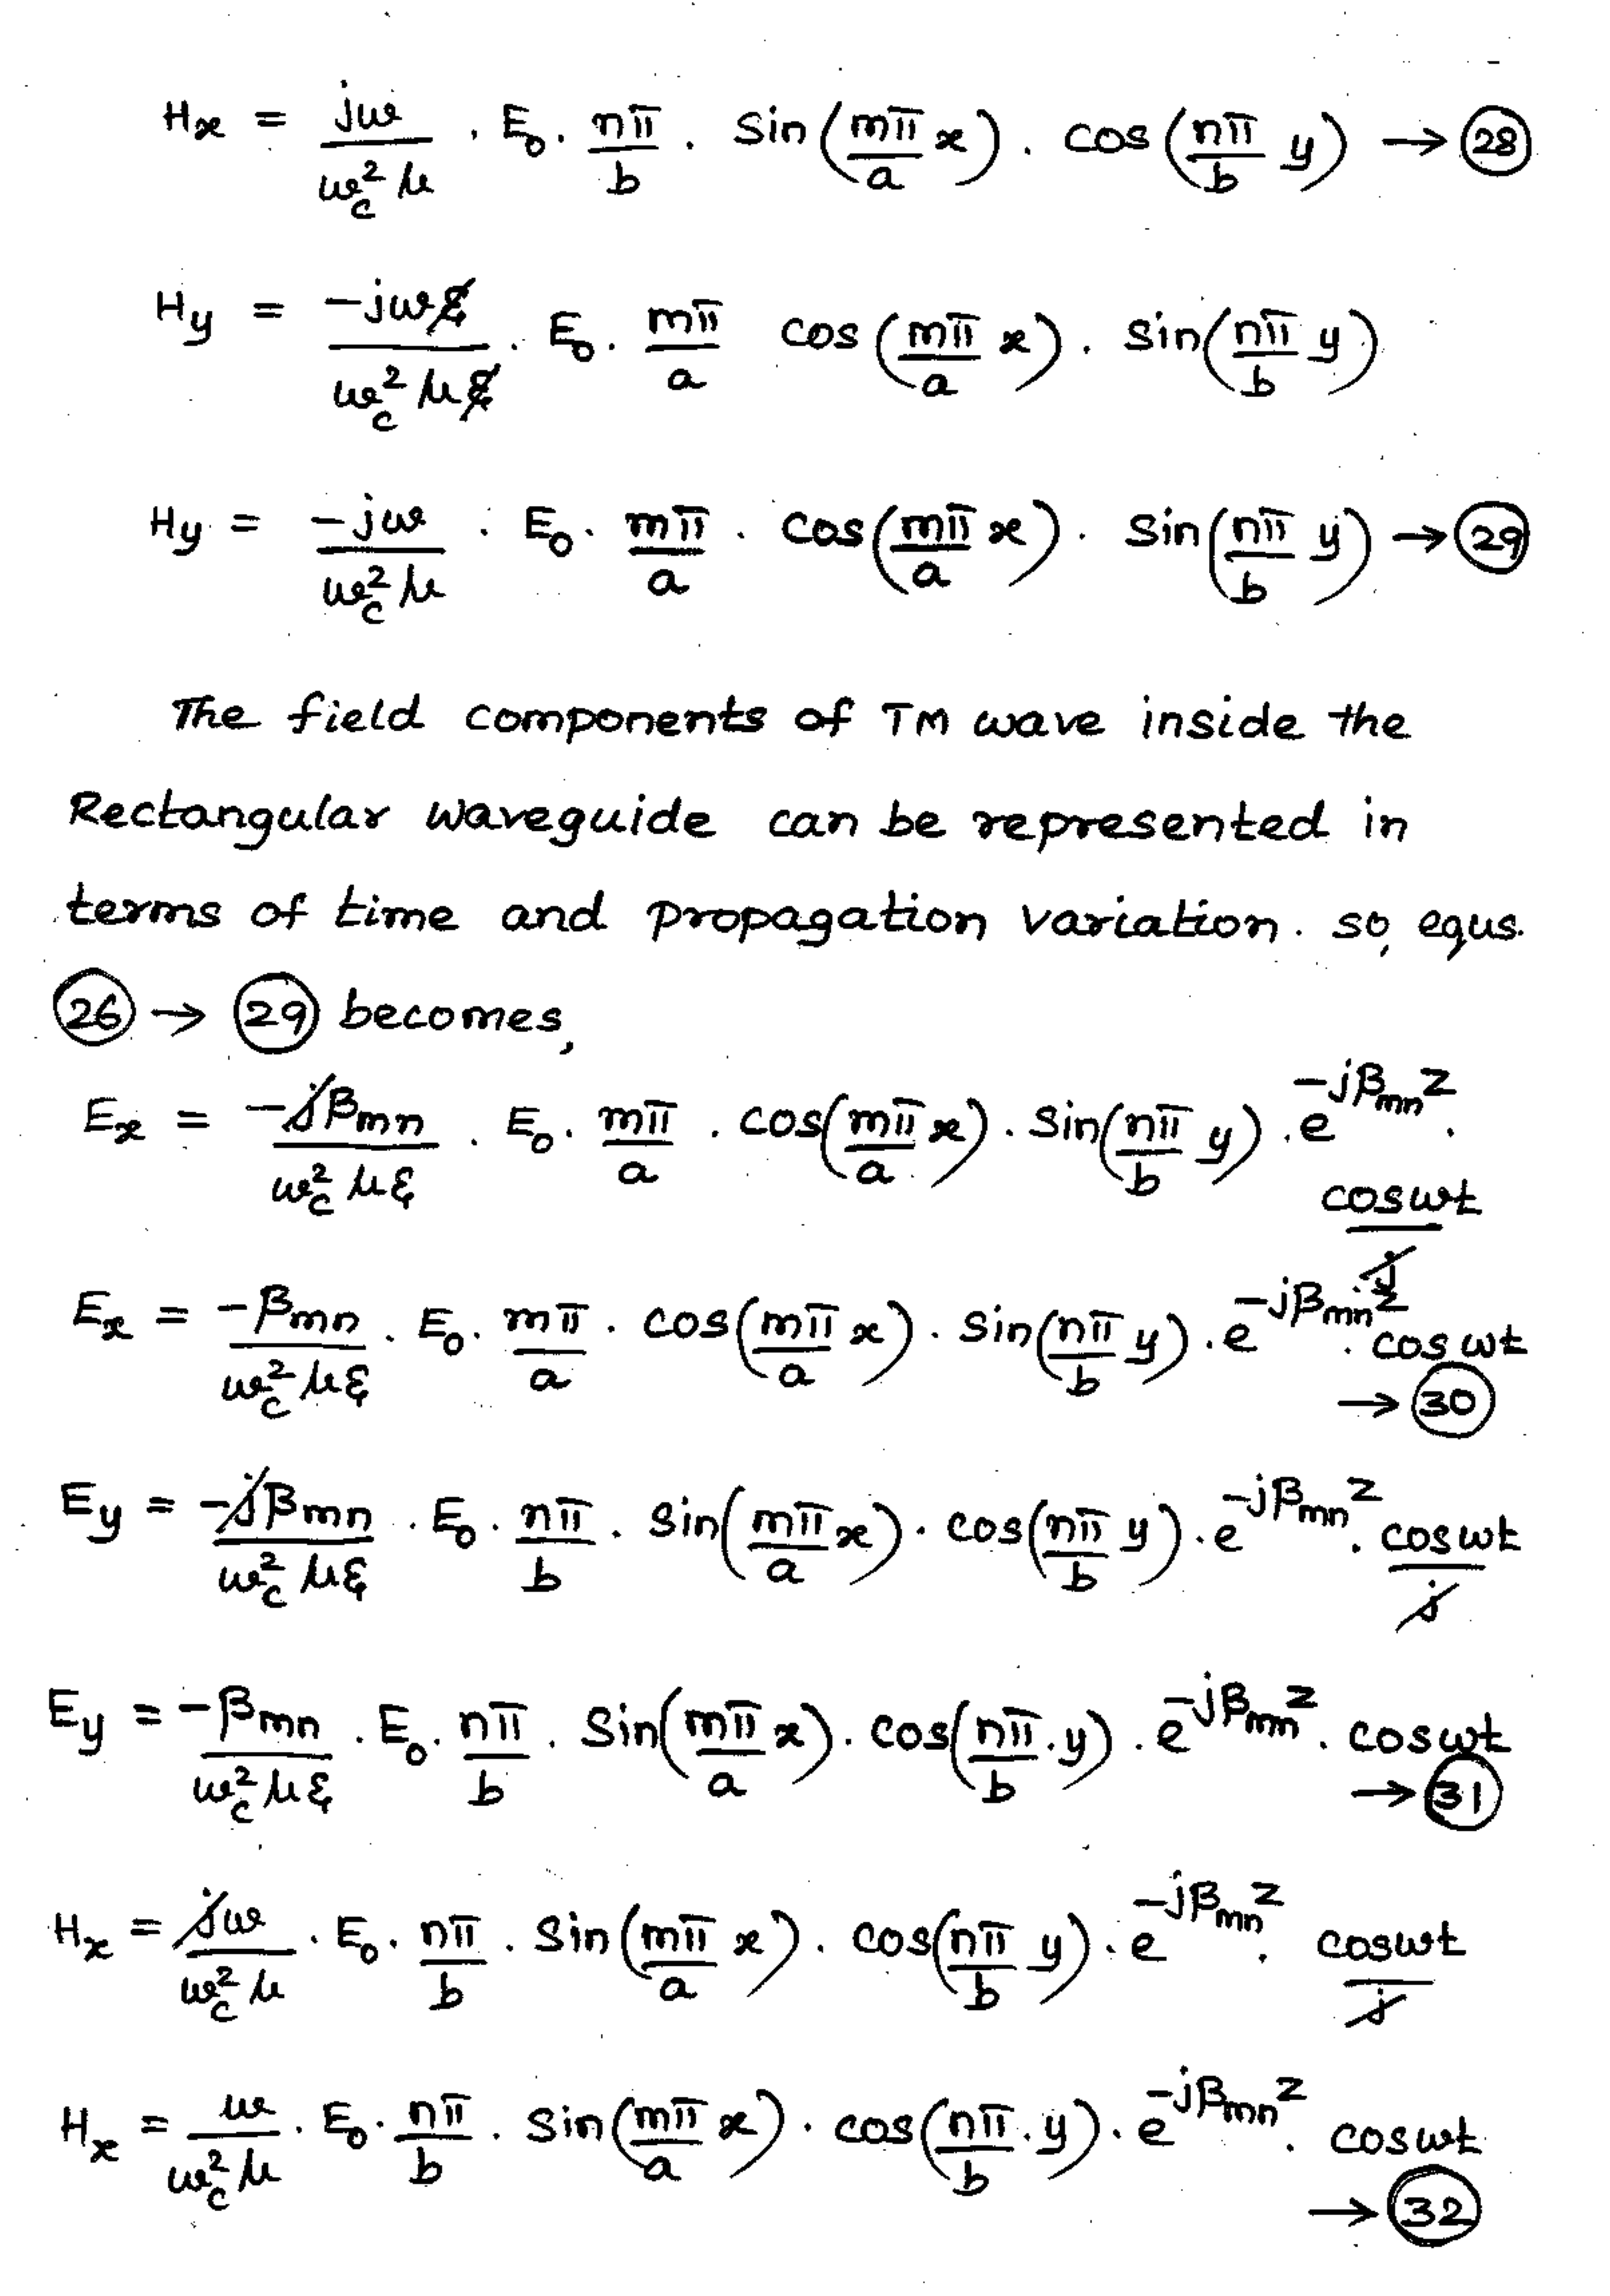 Hx = jω/ωc²μ . E₀ . nπ/b . sin(mπ/a x) . cos(nπ/b y) → (28)
Hy = -jωε/ωc²με . E₀ . mπ/a cos(mπ/a x) . sin(nπ/b y)
Hy = -jω/ωc²μ . E₀ . mπ/a . cos(mπ/a x) . sin(nπ/b y) → (29)
The field components of TM wave inside the
Rectangular waveguide can be represented in
terms of time and propagation variation. so, equs.
(26) → (29) becomes,
Ex = -jβmn/ωc²με . E₀ . mπ/a . cos(mπ/a x) . sin(nπ/b y) . e^(-jβmn z) . cosωt/j
Ex = -βmn/ωc²με . E₀ . mπ/a . cos(mπ/a x) . sin(nπ/b y) . e^(-jβmn z) . cosωt
→ (30)
Ey = -jβmn/ωc²με . E₀ . nπ/b . sin(mπ/a x) . cos(nπ/b y) . e^(-jβmn z) . cosωt/j
Ey = -βmn/ωc²με . E₀ . nπ/b . sin(mπ/a x) . cos(nπ/b . y) . e^(-jβmn z) . cosωt
→ (31)
Hx = jω/ωc²μ . E₀ . nπ/b . sin(mπ/a x) . cos(nπ/b y) . e^(-jβmn z) . cosωt/j
Hx = ω/ωc²μ . E₀ . nπ/b . sin(mπ/a x) . cos(nπ/b . y) . e^(-jβmn z) . cosωt
→ (32)